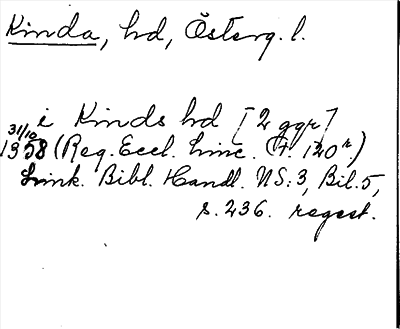 Kinda, hd, Österg. l.
i Kinds hd [2 ggr]
31/10
1358 (Reg. Eccl. Linc. f. 120r)
Link. Bibl. Handl. NS:3, Bil. 5,
s. 236. regest.